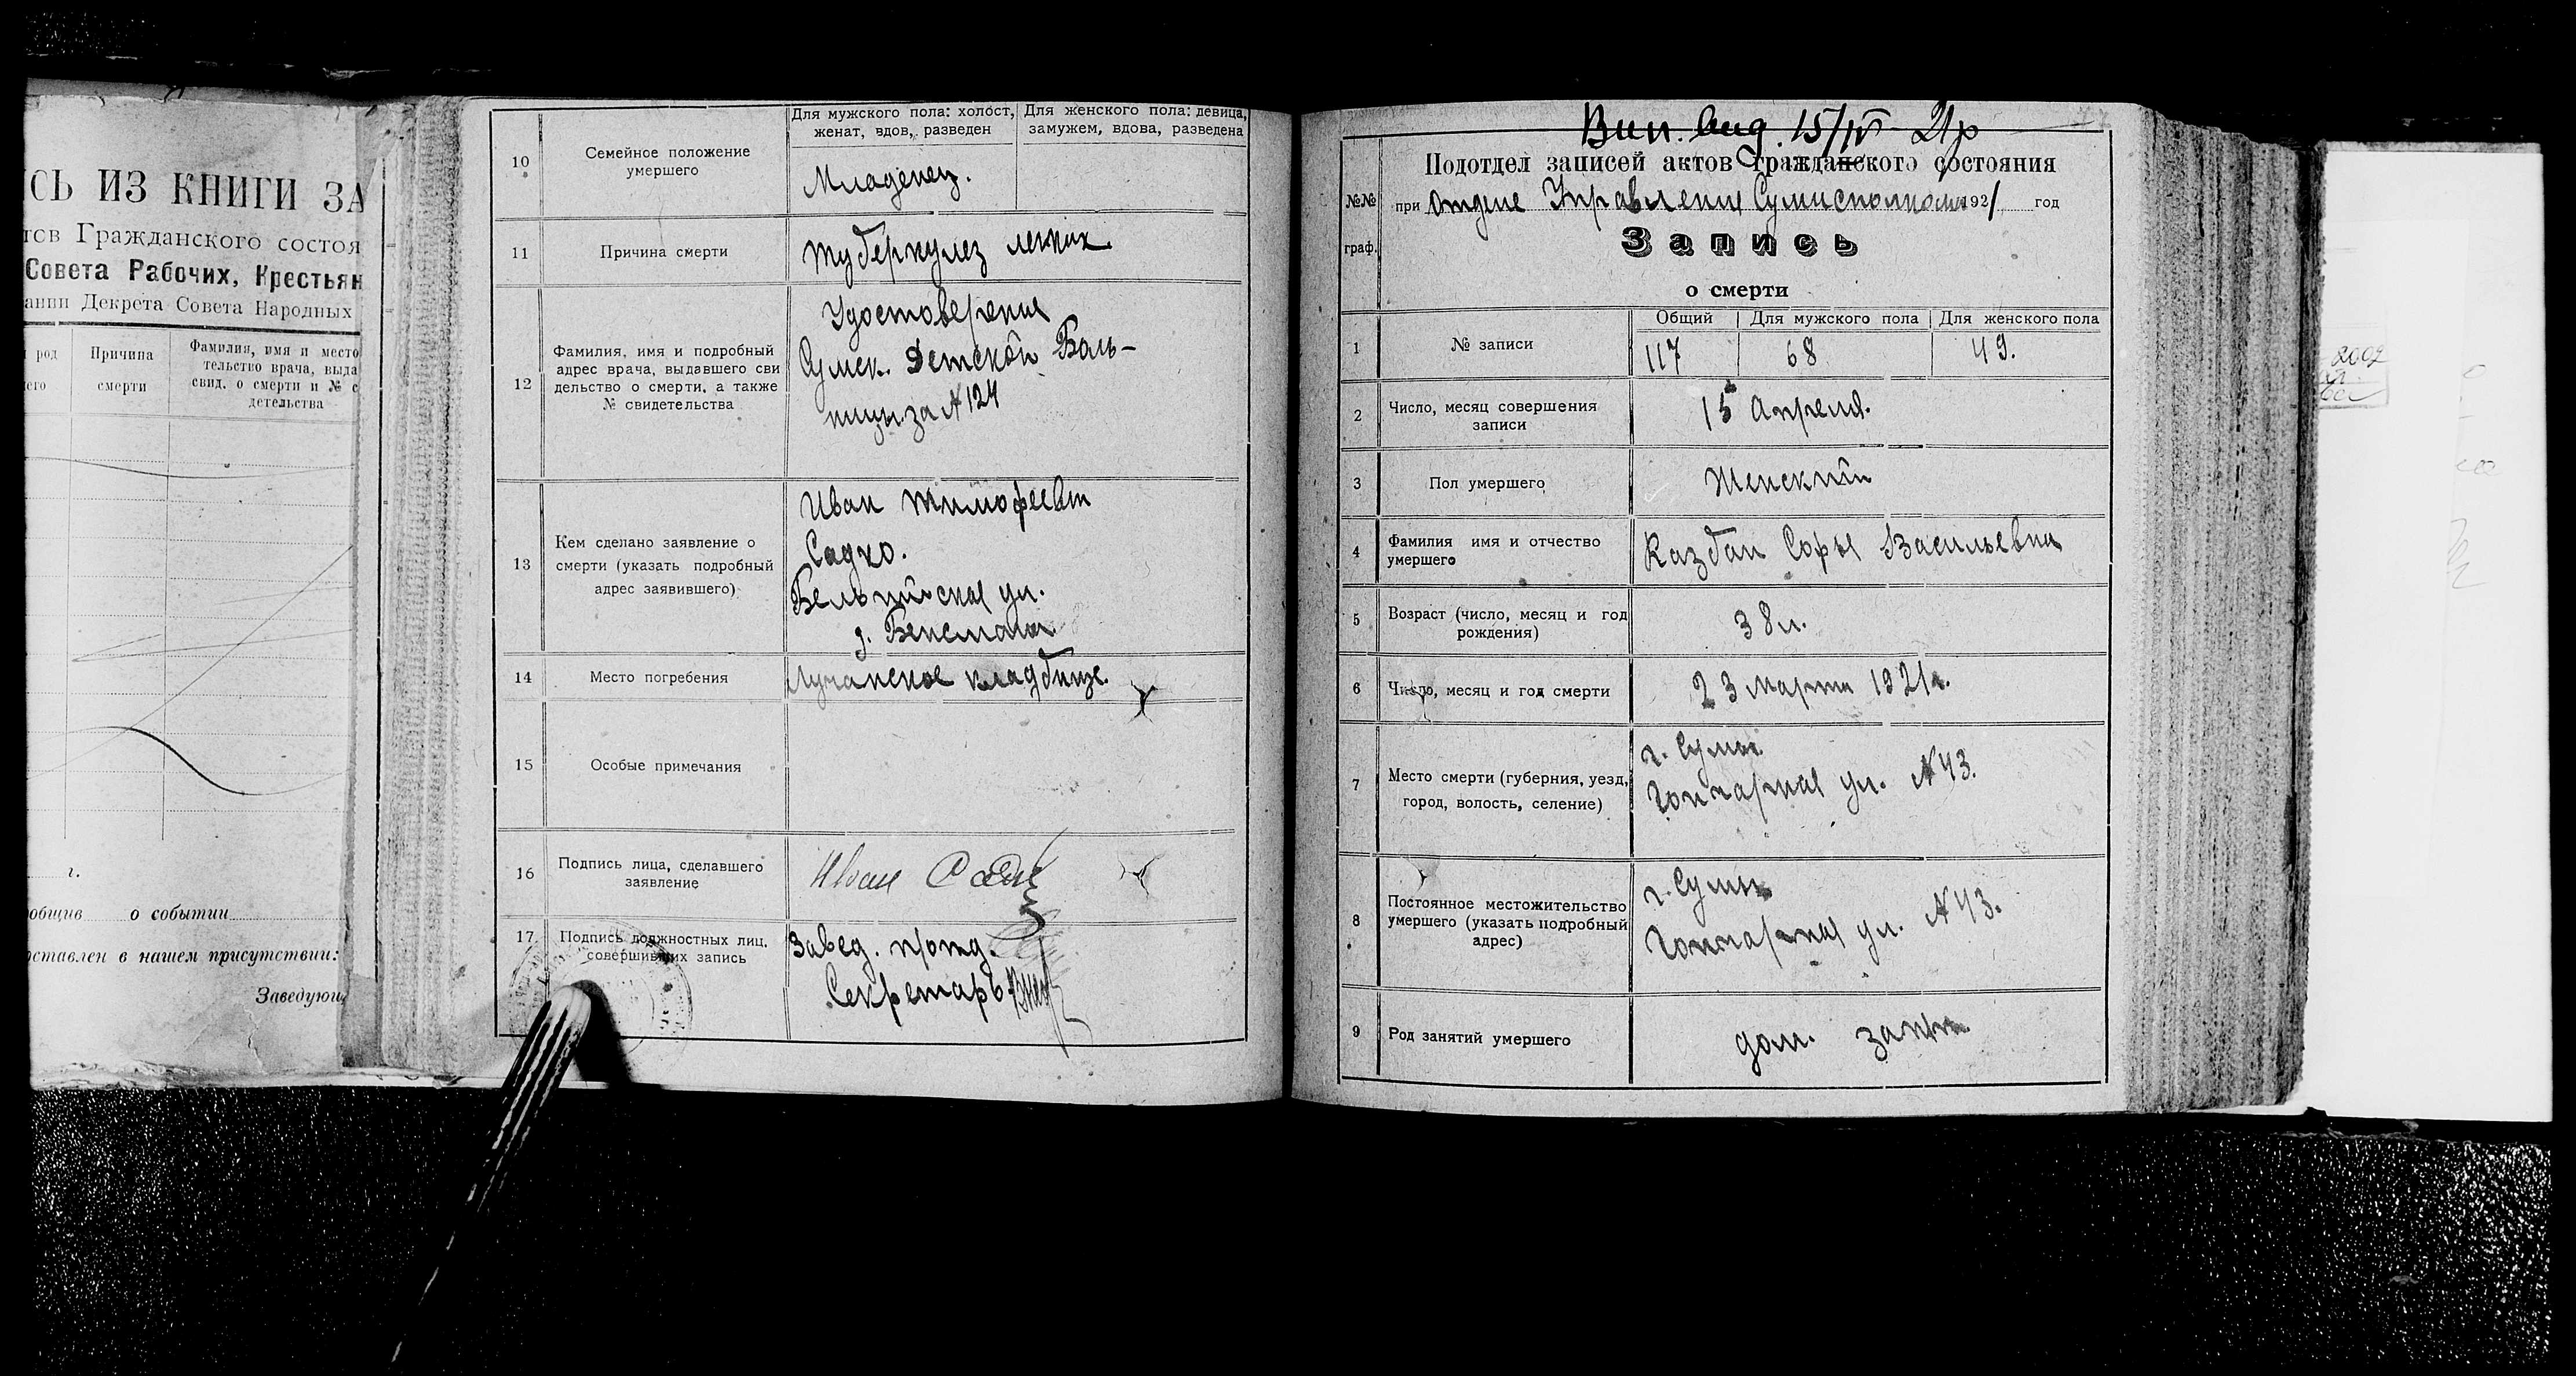 СЬ ИЗ КНИГИ ЗА
тов Гражданского состоя
Совета Рабочих, Крестьян
ании Декрета Совета Народных
род
его
Причина
смерти
Фамилия, имя и место
тельство врача, выда
свид. о смерти и № с
детельства
г.
общив о событии
оставлен в нашем присутствии:
Заведующ
10
Семейное положение
умершего
Для мужского пола: холост,
женат, вдов, разведен
Для женского пола: девица,
замужем, вдова, разведена
Младенец.
11
Причина смерти
туберкулез легких
12
Фамилия, имя и подробный
адрес врача, выдавшего сви
дельство о смерти, а также
№ свидетельства
Удостоверения
Сумск. Детской Боль-
ницы за № 124
13
Кем сделано заявление о
смерти (указать подробный
адрес заявившего)
Иван Тимофеевич
Садко.
Бельгийская ул.
д.
14
Место погребения
Лучанское кладбище.
15
Особые примечания
16
Подпись лица, сделавшего
заявление
Иван
17
Подпись должностных лиц,
совершивших запись
Завед. п/отд.
Секретарь
15/IV 21 р
№№
граф.
Подотдел записей актов гражданского состояния
при отделе Управления Сумисполкома 1921 год
Запись
о смерти
1
№ записи
Общий
Для мужского пола
Для женского пола
117
68
49.
2
Число, месяц совершения
записи
15 Апреля.
3
Пол умершего
Женский
4
Фамилия имя и отчество
умершего
Казбан Софья Васильевна
5
Возраст (число, месяц и год
рождения)
38 л.
6
Число, месяц и год смерти
23 марта 1921 г.
7
Место смерти (губерния, уезд,
город, волость, селение)
г. Сумы
Гончарная ул. № 43.
8
Постоянное местожительство
умершего (указать подробный
адрес)
г. Сумы
Гончарная ул. № 43.
9
Род занятий умершего
дом. занят.